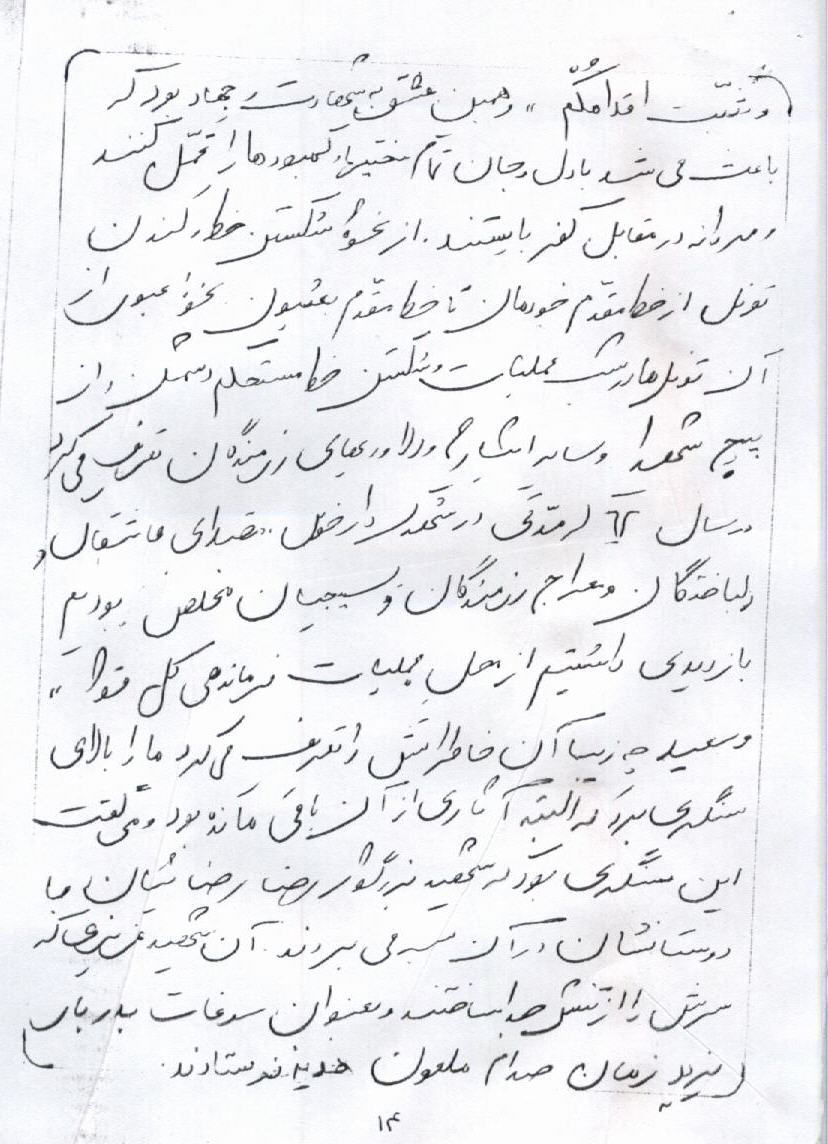 و یثبّت اقدامکُم» و همین عشق به شهادت و جهاد بود که
باعث می شد با دل و جان تمام سختیها و کمبودها را تحمّل کنند
و مردانه در مقابل کفر بایستند. از نحوهٔ شکستن خط و کندن
تونل از خط مقدّم خودمان تا خط مقدّم بعثیون نحوهٔ عبور از
آن تونل ها در شب عملیات و شکستن خط مستحکم دشمن و از
بسیج شهدا و سایر ایثارها و دلاوریهای رزمندگان تعریف می کرد
در سال ۶۲ که مدتی در شهرک دارخوین
دلباختگان و معراج رزمندگان و بسیجیان مخلص بودیم
بازدیدی داشتیم از محل عملیات فرماندهی کل قوا»
و سعید چه زیبا آن خاطراتش را تعریف می کرد ما را بالای
سنگری برد که البته آثاری از آن باقی مانده بود و می گفت
این سنگری بود که شهید بزرگوار رضا رضائیان با
دوستانشان در آن بسر می بردند. آن شهید عزیزی که
سرش را از تنش جدا ساختند و بعنوان سوغات بدربار
یزید زمان صدام ملعون هدیه فرستادند.
۱۴